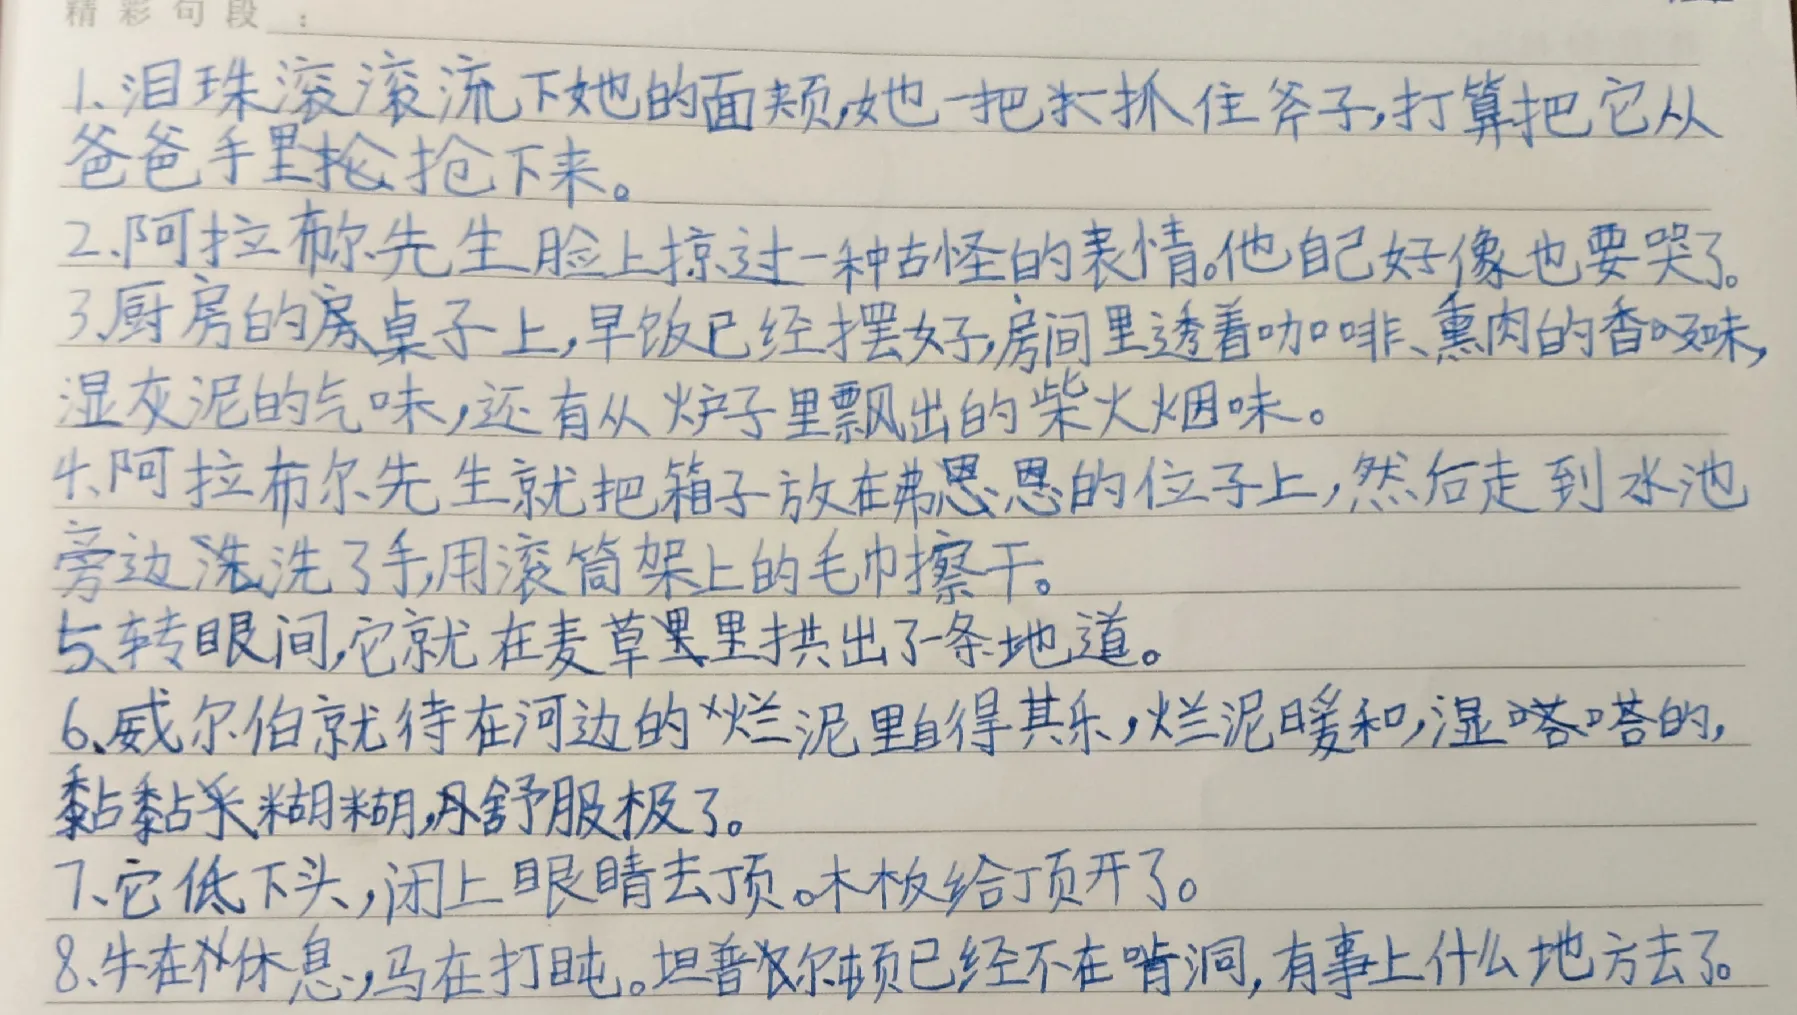 精彩句段：
1、泪珠滚滚流下她的面颊,她一把抓住斧子,打算把它从
爸爸手里抢下来。
2、阿拉布尔先生脸上掠过一种古怪的表情。他自己好像也要哭了。
3、厨房的桌子上,早饭已经摆好,房间里透着咖啡、熏肉的香味,
湿灰泥的气味,还有从炉子里飘出的柴火烟味。
4、阿拉布尔先生就把箱子放在弗恩的位子上,然后走到水池
旁边洗了手,用滚筒架上的毛巾擦干。
5、转眼间,它就在麦草里拱出了一条地道。
6、威尔伯就待在河边的烂泥里自得其乐,烂泥暖和,湿嗒嗒的,
黏黏糊糊,舒服极了。
7、它低下头,闭上眼睛去顶。木板给顶开了。
8、牛在休息,马在打盹。坦普尔顿已经不在啃洞,有事上什么地方去了。